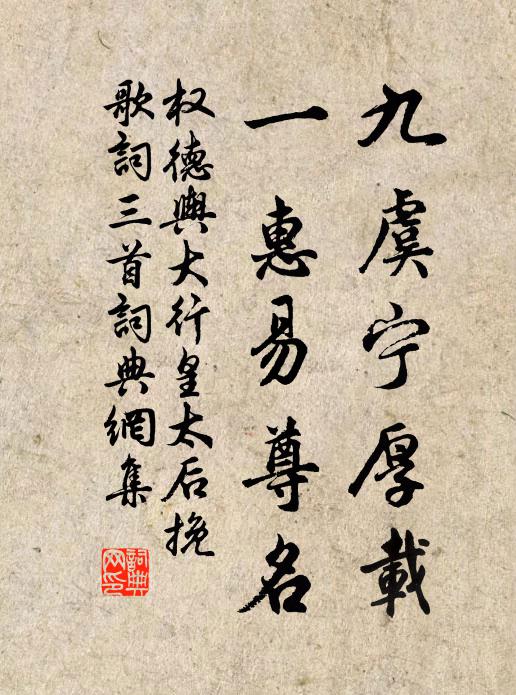 九虞宁厚載
一惠易尊名
权德輿大行皇太后挽
歌詞三首詞典網集
詞典網印